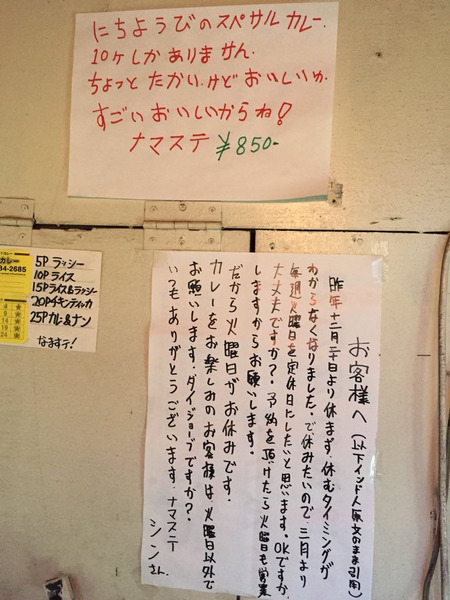 にちようびのスペサルカレー.
10ケしかありません.
ちょっとたかい.けどおいしいか.
すごいおいしいからね!
ナマステ ¥850-
カレー
34-2685
4
9
14
19
24
5P ラッシー
10P ライス
15Pライス&ラッシー
20Pチキンティッカ
25Pカレー&ナン
なますテ!
お客様へ(以下インド人原文のまま引用)
昨年十二月二十日より休まず、休むタイミングが
わからなくなりました。で休みたいので三月より
毎週火曜日を定休日にしたいと思います。OKですか
大丈夫ですか?予約を頂けたら火曜日も営業
しますからお願いします。
だから火曜日がお休みです.
カレーをお楽しみのお客様は火曜日以外で
お願いします.ダイジョーブですか?
いつもありがとうございます.ナマステ
シンさん